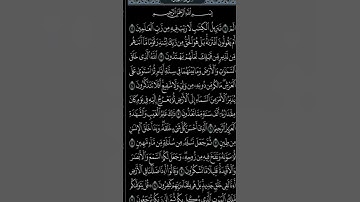 بِسْمِ ٱللَّهِ ٱلرَّحْمَٰنِ ٱلرَّحِيمِ
الٓمٓ ١ تَنزِيلُ ٱلْكِتَٰبِ لَا رَيْبَ فِيهِ مِن رَّبِّ ٱلْعَٰلَمِينَ ٢
أَمْ يَقُولُونَ ٱفْتَرَىٰهُ بَلْ هُوَ ٱلْحَقُّ مِن رَّبِّكَ لِتُنذِرَ قَوْمًا مَّآ أَتَىٰهُم
مِّن نَّذِيرٍ مِّن قَبْلِكَ لَعَلَّهُمْ يَهْتَدُونَ ٣ ٱللَّهُ ٱلَّذِى خَلَقَ
ٱلسَّمَٰوَٰتِ وَٱلْأَرْضَ وَمَا بَيْنَهُمَا فِى سِتَّةِ أَيَّامٍ ثُمَّ ٱسْتَوَىٰ عَلَى
ٱلْعَرْشِ مَا لَكُم مِّن دُونِهِۦ مِن وَلِىٍّ وَلَا شَفِيعٍ أَفَلَا تَتَذَكَّرُونَ ٤
يُدَبِّرُ ٱلْأَمْرَ مِنَ ٱلسَّمَآءِ إِلَى ٱلْأَرْضِ ثُمَّ يَعْرُجُ إِلَيْهِ فِى يَوْمٍ كَانَ
مِقْدَارُهُۥٓ أَلْفَ سَنَةٍ مِّمَّا تَعُدُّونَ ٥ ذَٰلِكَ عَٰلِمُ ٱلْغَيْبِ وَٱلشَّهَٰدَةِ
ٱلْعَزِيزُ ٱلرَّحِيمُ ٦ ٱلَّذِىٓ أَحْسَنَ كُلَّ شَىْءٍ خَلَقَهُۥ وَبَدَأَ خَلْقَ ٱلْإِنسَٰنِ
مِن طِينٍ ٧ ثُمَّ جَعَلَ نَسْلَهُۥ مِن سُلَٰلَةٍ مِّن مَّآءٍ مَّهِينٍ ٨
ثُمَّ سَوَّىٰهُ وَنَفَخَ فِيهِ مِن رُّوحِهِۦ وَجَعَلَ لَكُمُ ٱلسَّمْعَ وَٱلْأَبْصَٰرَ
وَٱلْأَفْـِٔدَةَ قَلِيلًا مَّا تَشْكُرُونَ ٩ وَقَالُوٓا۟ أَءِذَا ضَلَلْنَا فِى ٱلْأَرْضِ
أَءِنَّا لَفِى خَلْقٍ جَدِيدٍۭ بَلْ هُم بِلِقَآءِ رَبِّهِمْ كَٰفِرُونَ ١٠ قُلْ يَتَوَفَّىٰكُم
مَّلَكُ ٱلْمَوْتِ ٱلَّذِى وُكِّلَ بِكُمْ ثُمَّ إِلَىٰ رَبِّكُمْ تُرْجَعُونَ ١١